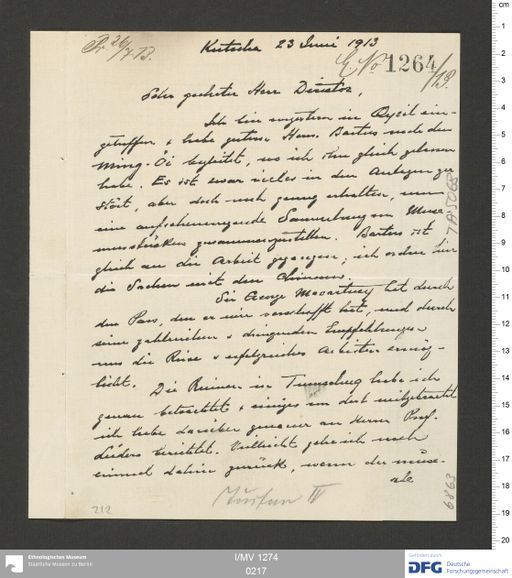 Pr. 26/7.13.
Kutscha 23 Juni 1913
E. No 1264/13.
Sehr geehrter Herr Direktor,
Ich bin vorgestern in Qyzil ein-
getroffen & habe gestern Herrn Bartus nach den
Ming-Öi begleitet, wo ich ihn gleich gelassen
habe. Es ist zwar vieles in den Anlagen zer
stört, aber doch noch genug erhalten, um
eine Sammlung von Muse-
umsstücken zusammenzustellen. Bartus ist
gleich an die Arbeit gegangen; ich ordne hier
die Sachen mit den Chinesen.
Sir George Macartney hat durch
den Pass, den er mir verschafft hat, und durch
seine zahlreichen & dringenden Empfehlungen
uns die Reise & erfolgreiches Arbeiten ermög-
licht. Die Ruinen in Tumschuq habe ich
genau betrachtet & einiges von dort mitgebracht
ich habe darüber genauer an Herrn Prof.
Lüders berichtet. Vielleicht gehe ich noch
einmal dahin zurück, wenn der
als
Turfan IV
212
TA 5068
6968
I/MV 1274
0217
Ethnologisches Museum
Staatliche Museen zu Berlin
Gefördert durch
DFG Deutsche
Forschungsgemeinschaft
cm
1
2
3
4
5
6
7
8
9
10
11
12
13
14
15
16
17
18
19
20